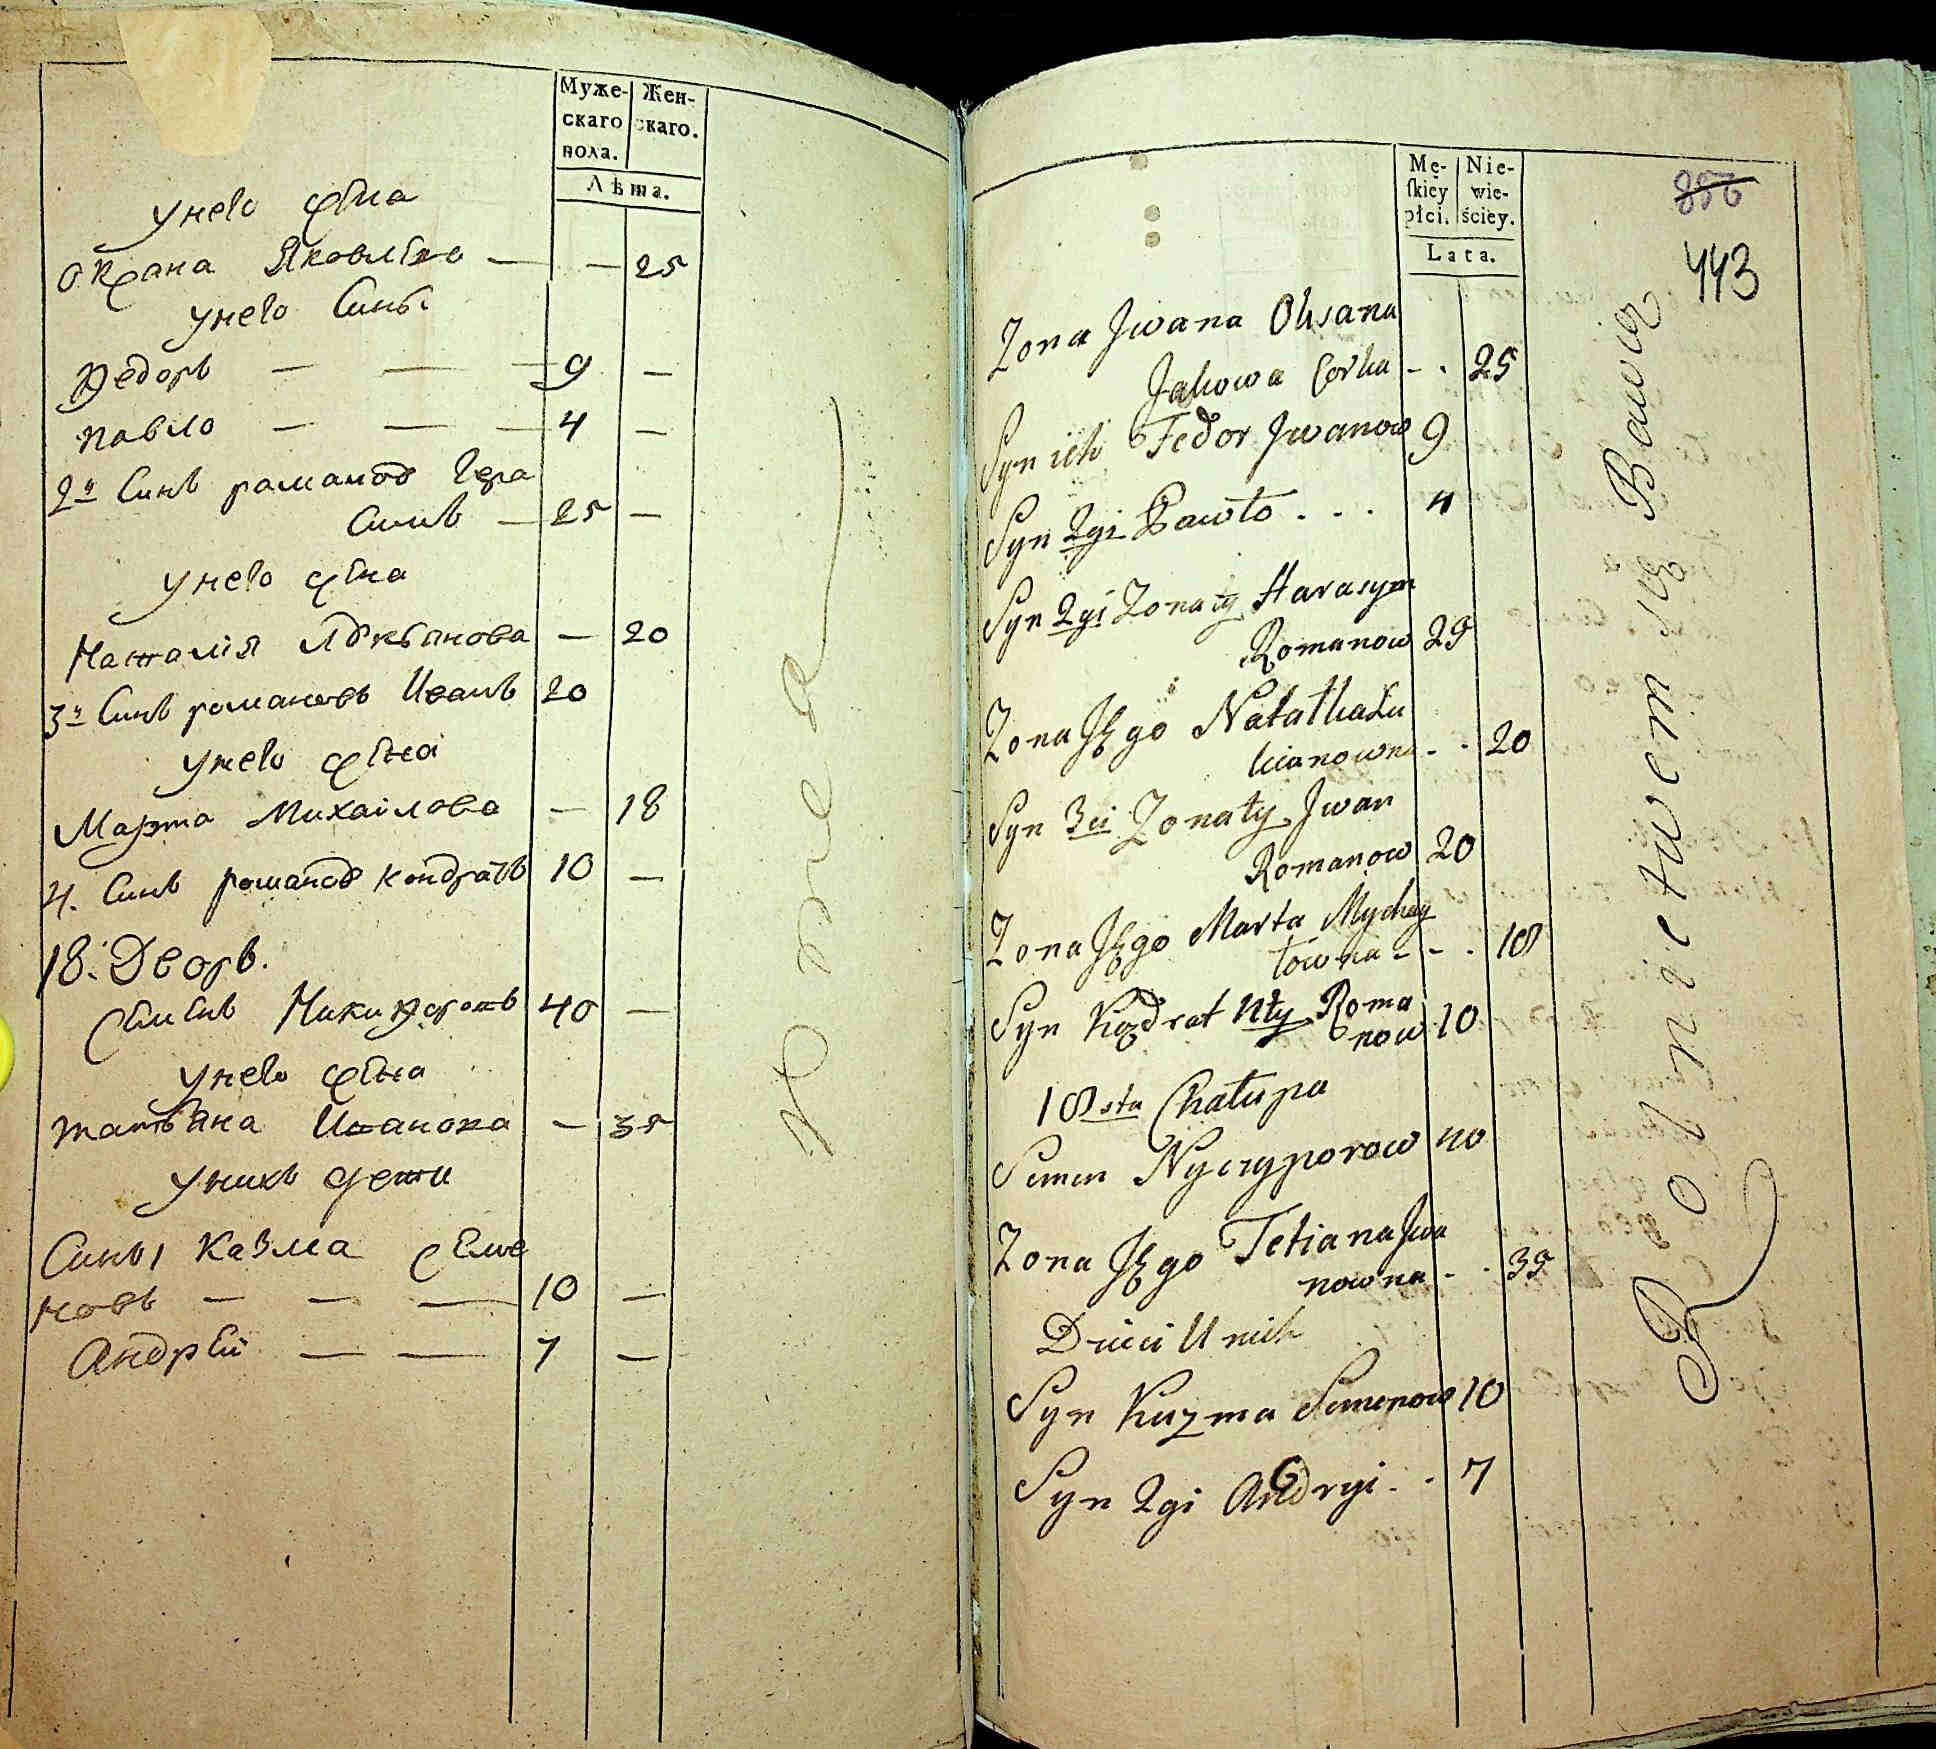 Муже-
скаго
пола.
Жен-
скаго.
Лѣта.
У него жена
Оксана Яковлева — — 25
У него Сины
Федоръ — — — 9 —
Павло — — — 4 —
2й Синъ романов Гера
Симъ — 25 —
У него жена
Наталія Лукьянова — 20
3й Синъ романовъ Иванъ 20
У него жена
Марта Михаілова — 18
4. Синъ романов Кондратъ 10 —
18. Дворъ.
Семенъ Никифоровъ 40 —
У него жена
Татьяна Иванова — 35
У нихъ дети
Сины Казма Семе
новъ — — — 10 —
Андрей — — 7 —
Mę-
skiey
płci.
Nie-
wie-
ściey.
Lata.
856
443
Zona Jwana Oksana
Jakowa Corka - . 25
Syn ich Fedor Jwanow 9
Syn 2gi Pawło . . . 4
Syn 2gi Zonaty Harasym
Romanow 25
Zona Jego Natałka Łu
kianowna - . 20
Syn 3ci Zonaty Jwan
Romanow 20
Zona Jego Marta Mychay
łowna - - . 18
Syn Kodrat 4ty Roma
now 10
18sta Chałupa
Semen Nyczyporow 40
Zona Jego Tetiana Jwa
nowna - . 35
Dzieci U nich
Syn Kuzma Semenow 10
Syn 2gi Andryi . . 7
Rolnictwem się Bawią